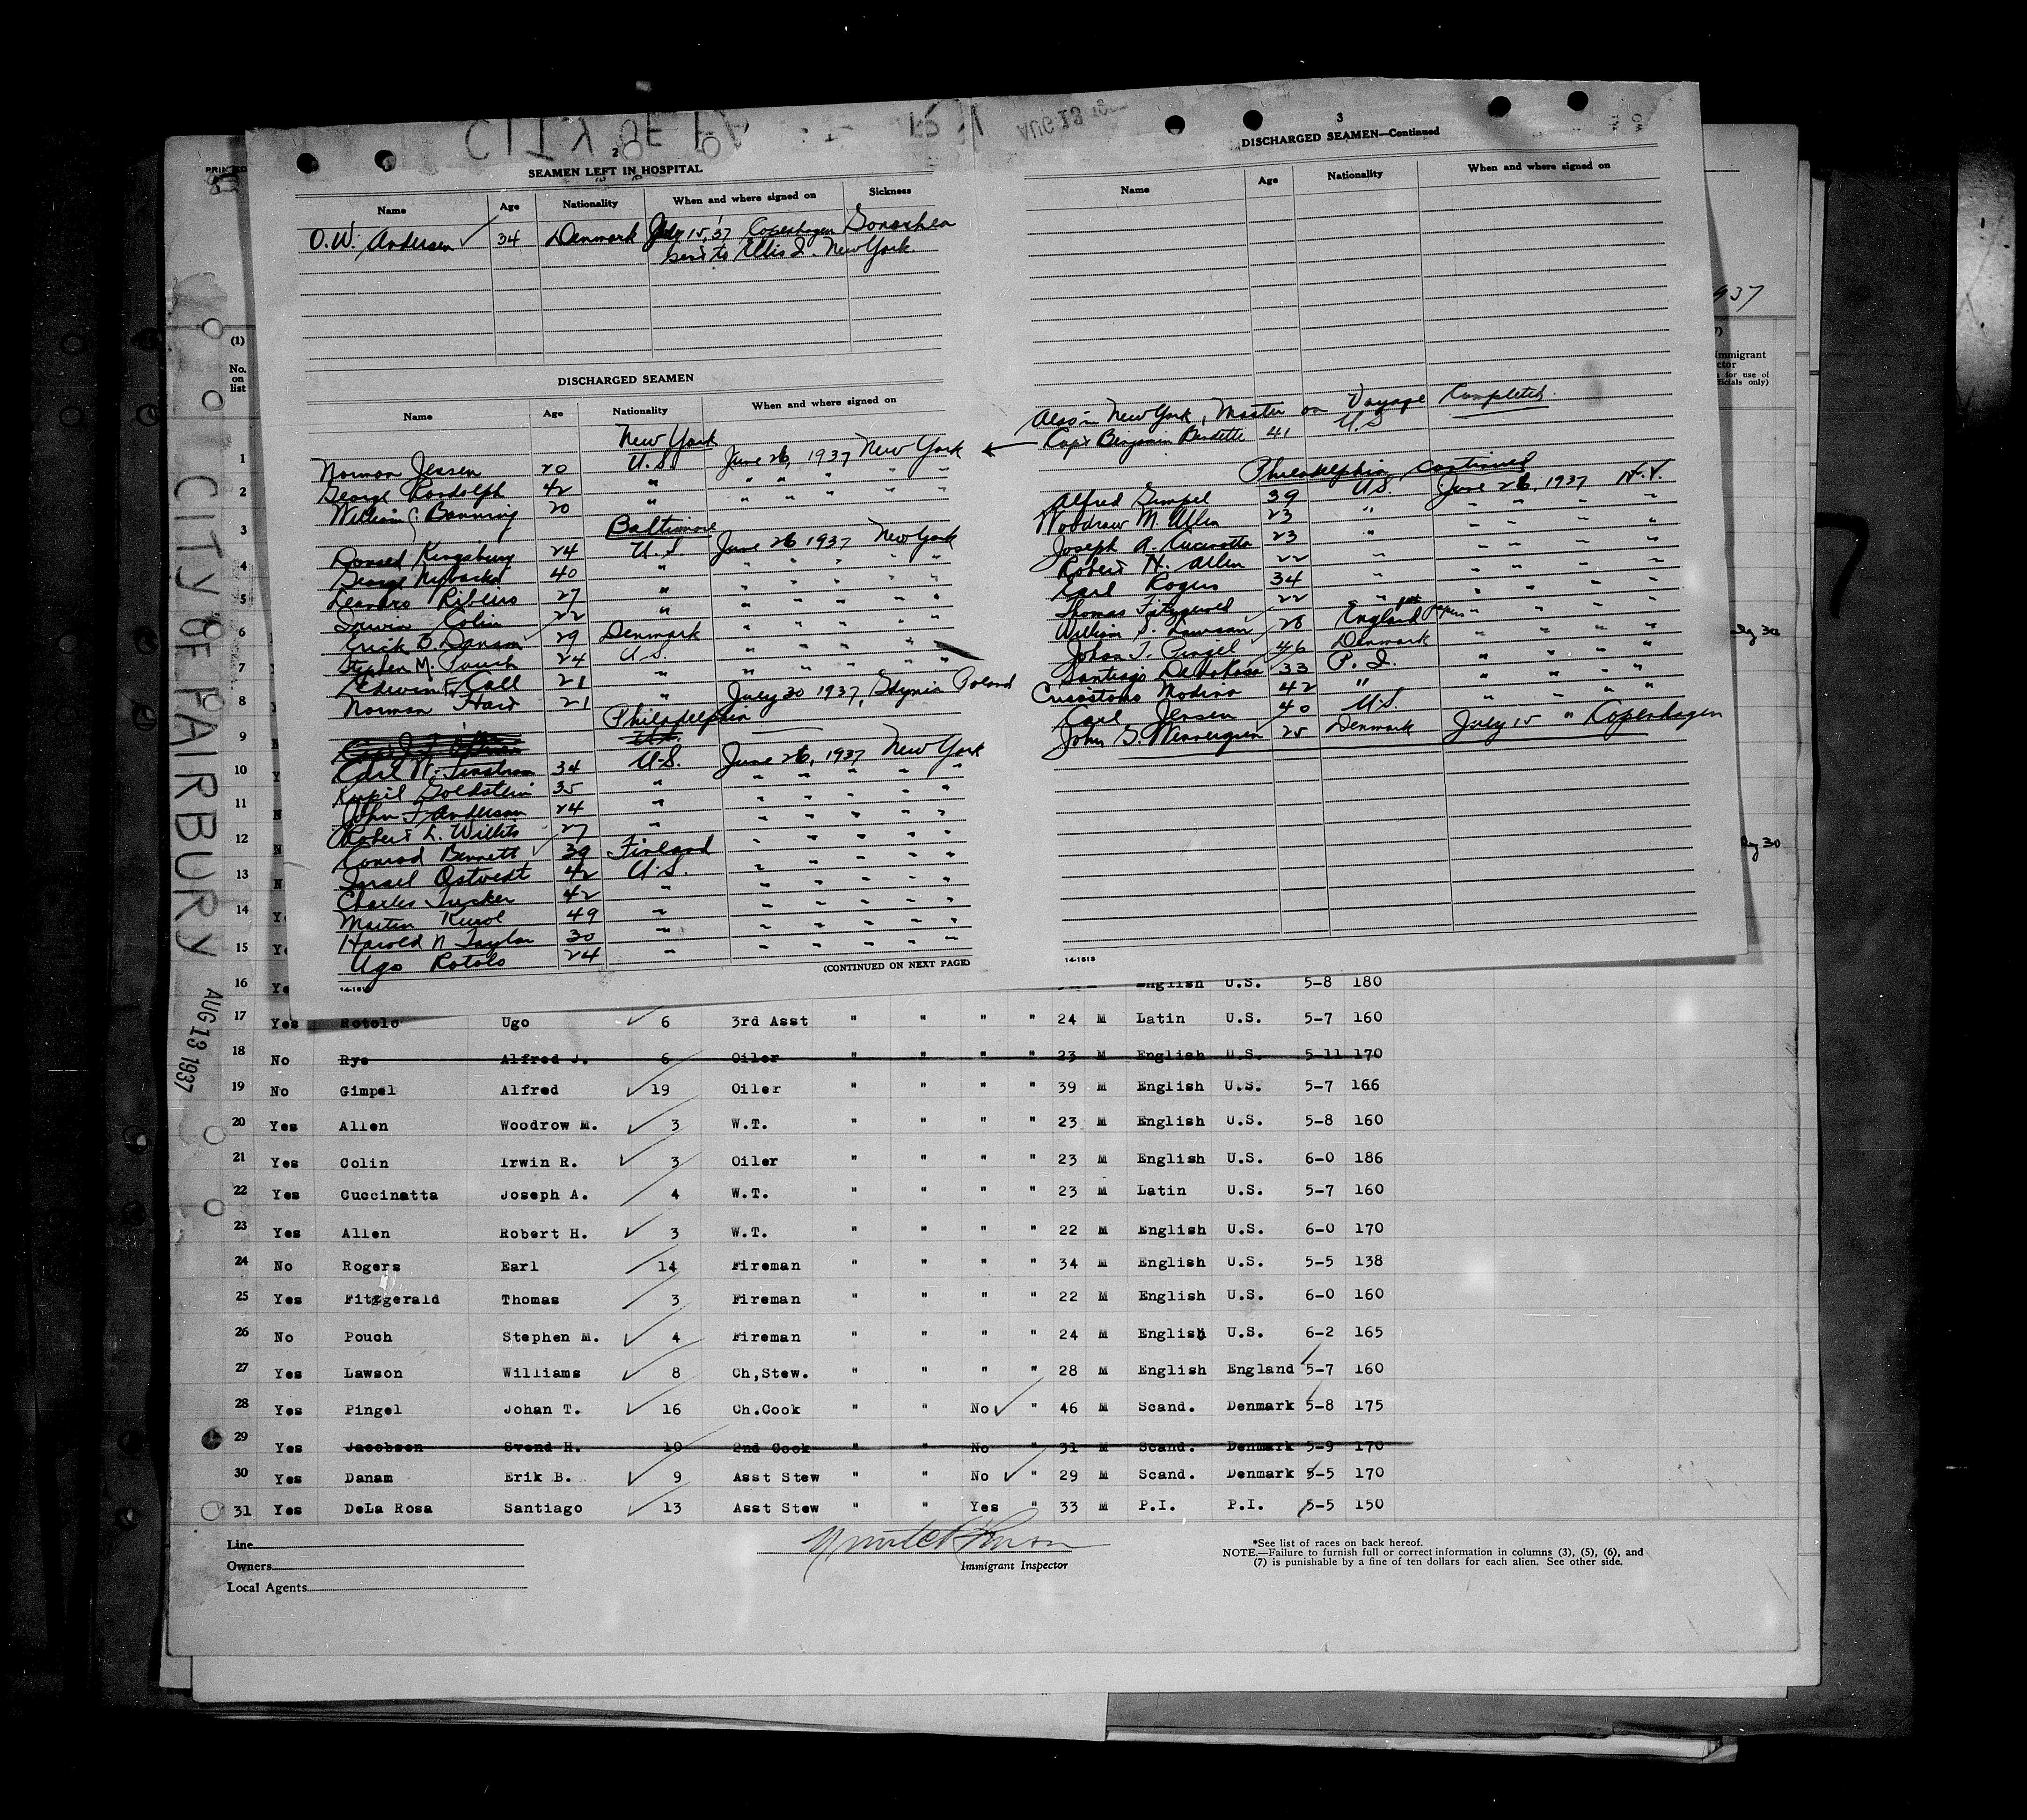 2
SEAMEN LEFT IN HOSPITAL
Name Age Nationality When and where signed on Sickness
O.W. Andersen 34 Denmark July 15, 37 Copenhagen Gonorrhea
Sent to Ellis I. New York
DISCHARGED SEAMEN
Name Age Nationality When and where signed on
New York
Norman Jensen 20 U.S. June 26, 1937 New York
George Randolph 42 " " " " " "
William C Banning 20 " " " " " "
Baltimore
Donald Kingsbury 24 U.S June 26 1937 New York
George 40 " " " " " "
Leandro Ribeiro 27 " " " " " "
Irwin Colin 22 " " " " " "
Erick B. Danam 29 Denmark " " " " "
Stephen M. Pouch 24 U.S. " " " " "
Edwin F. Call 21 " " " " " "
Norman 21 " July 30 1937, Gdynia Poland
Philadelphia
Carl 34 U.S. June 26, 1937 New York
Goldstein 35 " " " " " "
John F. Anderson 24 " " " " " "
Robert L. Willits 27 " " " " " "
Conrad Bennett 39 Finland " " " " "
Israel Ostvedt 42 U.S. " " " " "
Charles Tucker 42 " " " " " "
Martin 49 " " " " " "
Harold N Taylor 30 " " " " " "
Ugo Rotolo 24 " " " " " "
(CONTINUED ON NEXT PAGE)
14-1613
3
DISCHARGED SEAMEN—Continued
Name Age Nationality When and where signed on
Also in New York, Master on Voyage Completed.
Capt Benjamin 41 U.S
Philadelphia Continued
Alfred Gimpel 39 U.S. June 26, 1937 N.Y.
Woodrow M. Allen 23 " " " " " "
Joseph A. 23 " " " " " "
Robert H. Allen 22 " " " " " "
Earl Rogers 34 " " " " " "
Thomas Fitzgerald 22 " " " " " "
William S. Lawson 28 England 1st papers " " " "
Johan T. Pingel 46 Denmark " " " " "
Santiago De la Rosa 33 P.I. " " " " "
Crisostomo Modina 42 " " " " " "
Carl Jensen 40 U.S. " " " " "
John G. Wennergren 25 Denmark July 15 " Copenhagen
14-1613
CITY OF FAIRBURY AUG 13 1937
(1)
No. on list
1
2
3
4
5
6
7
8
9
10
11
12
13
14
15
16 English U.S. 5-8 180
17 Yes Rotolo Ugo 6 3rd Asst " " " " 24 M Latin U.S. 5-7 160
18 No Rye Alfred J. 6 Oiler " " " " 23 M English U.S. 5-11 170
19 No Gimpel Alfred 19 Oiler " " " " 39 M English U.S. 5-7 166
20 Yes Allen Woodrow M. 3 W.T. " " " " 23 M English U.S. 5-8 160
21 Yes Colin Irwin R. 3 Oiler " " " " 23 M English U.S. 6-0 186
22 Yes Cuccinatta Joseph A. 4 W.T. " " " " 23 M Latin U.S. 5-7 160
23 Yes Allen Robert H. 3 W.T. " " " " 22 M English U.S. 6-0 170
24 No Rogers Earl 14 Fireman " " " " 34 M English U.S. 5-5 138
25 Yes Fitzgerald Thomas 3 Fireman " " " " 22 M English U.S. 6-0 160
26 No Pouch Stephen M. 4 Fireman " " " " 24 M English U.S. 6-2 165
27 Yes Lawson Williams 8 Ch,Stew. " " " " 28 M English England 5-7 160
28 Yes Pingel Johan T. 16 Ch.Cook " " No " 46 M Scand. Denmark 5-8 175
29 Yes Jacobsen Svend H. 10 2nd Cook " " No " 31 M Scand. Denmark 5-9 170
30 Yes Danam Erik B. 9 Asst Stew " " No " 29 M Scand. Denmark 5-5 170
31 Yes DeLa Rosa Santiago 13 Asst Stew " " Yes " 33 M P.I. P.I. 5-5 150
Line
Owners
Local Agents
Immigrant Inspector
*See list of races on back hereof.
NOTE.—Failure to furnish full or correct information in columns (3), (5), (6), and
(7) is punishable by a fine of ten dollars for each alien. See other side.